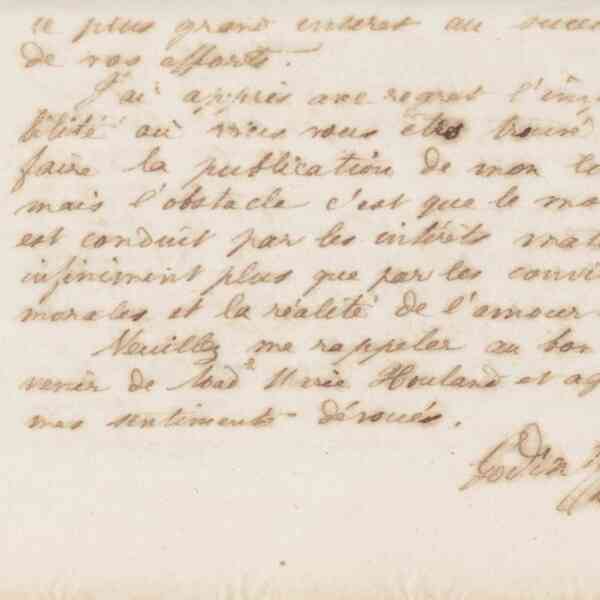 le plus grand interet au succ
de vos efforts.
J'ai appris avec regret l'im
bilité où vous vous êtes trouvé
faire la publication de mon
mais l'obstacle c'est que le mo
est conduit par les intérêts mat
infiniment plus que par les convi
morales et la réalité de l'amour
Veuillez me rappeler au bon
venir de Mad^e Marie Howland et ag
mes sentiments dévoués.
Godin